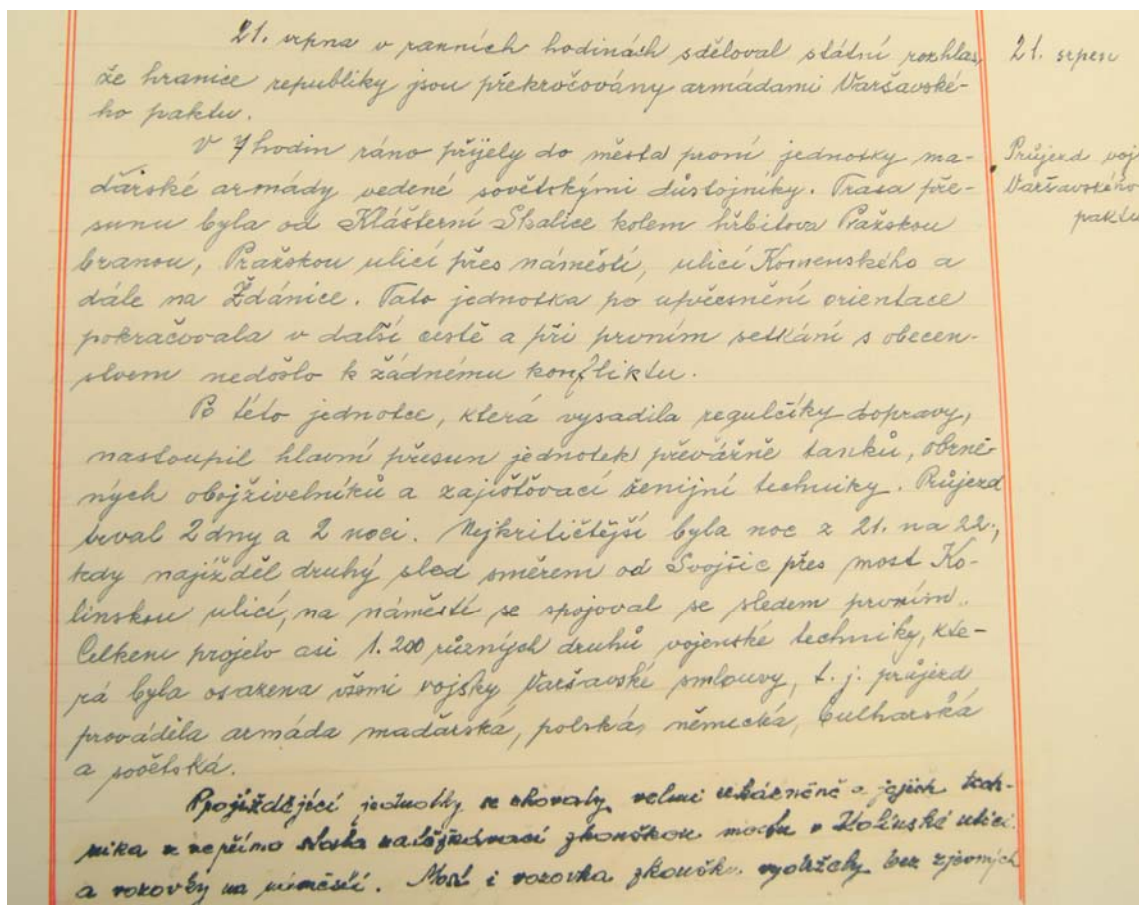 21. srpna v ranních hodinách sděloval státní rozhlas,
že hranice republiky jsou překročovány armádami Varšavské-
ho paktu.
V 7 hodin ráno přijely do města první jednotky ma-
ďarské armády vedené sovětskými důstojníky. Trasa pře-
sunu byla od Klášterní Skalice kolem hřbitova Pražskou
branou, Pražskou ulicí přes náměstí, ulicí Komenského a
dále na Ždánice. Tato jednotka po upřesnění orientace
pokračovala v další cestě a při prvním setkání s obecen-
stvem nedošlo k žádnému konfliktu.
Po této jednotce, která vysadila regulčíky dopravy,
nastoupil hlavní přesun jednotek převážně tanků, obrně-
ných obojživelníků a zajišťovací ženijní techniky. Průjezd
trval 2 dny a 2 noci. Nejkritičtější byla noc z 21. na 22.,
kdy najížděl druhý sled směrem od Svojšic přes most Ko-
línskou ulicí, na náměstí se spojoval se sledem prvním.
Celkem projelo asi 1.200 různých druhů vojenské techniky, kte-
rá byla osazena všemi vojsky Varšavské smlouvy, t.j. průjezd
prováděla armáda maďarská, polská, německá, bulharská
a sovětská.
Projíždějící jednotky se chovaly velmi ukázněně a jejich tech-
nika se nepřímo stala zatěžkávací zkouškou mostu v Kolínské ulici
a vozovky na náměstí. Most i vozovka zkoušku vydržely bez zjevných
21. srpen
Průjezd voj
Varšavského
paktu